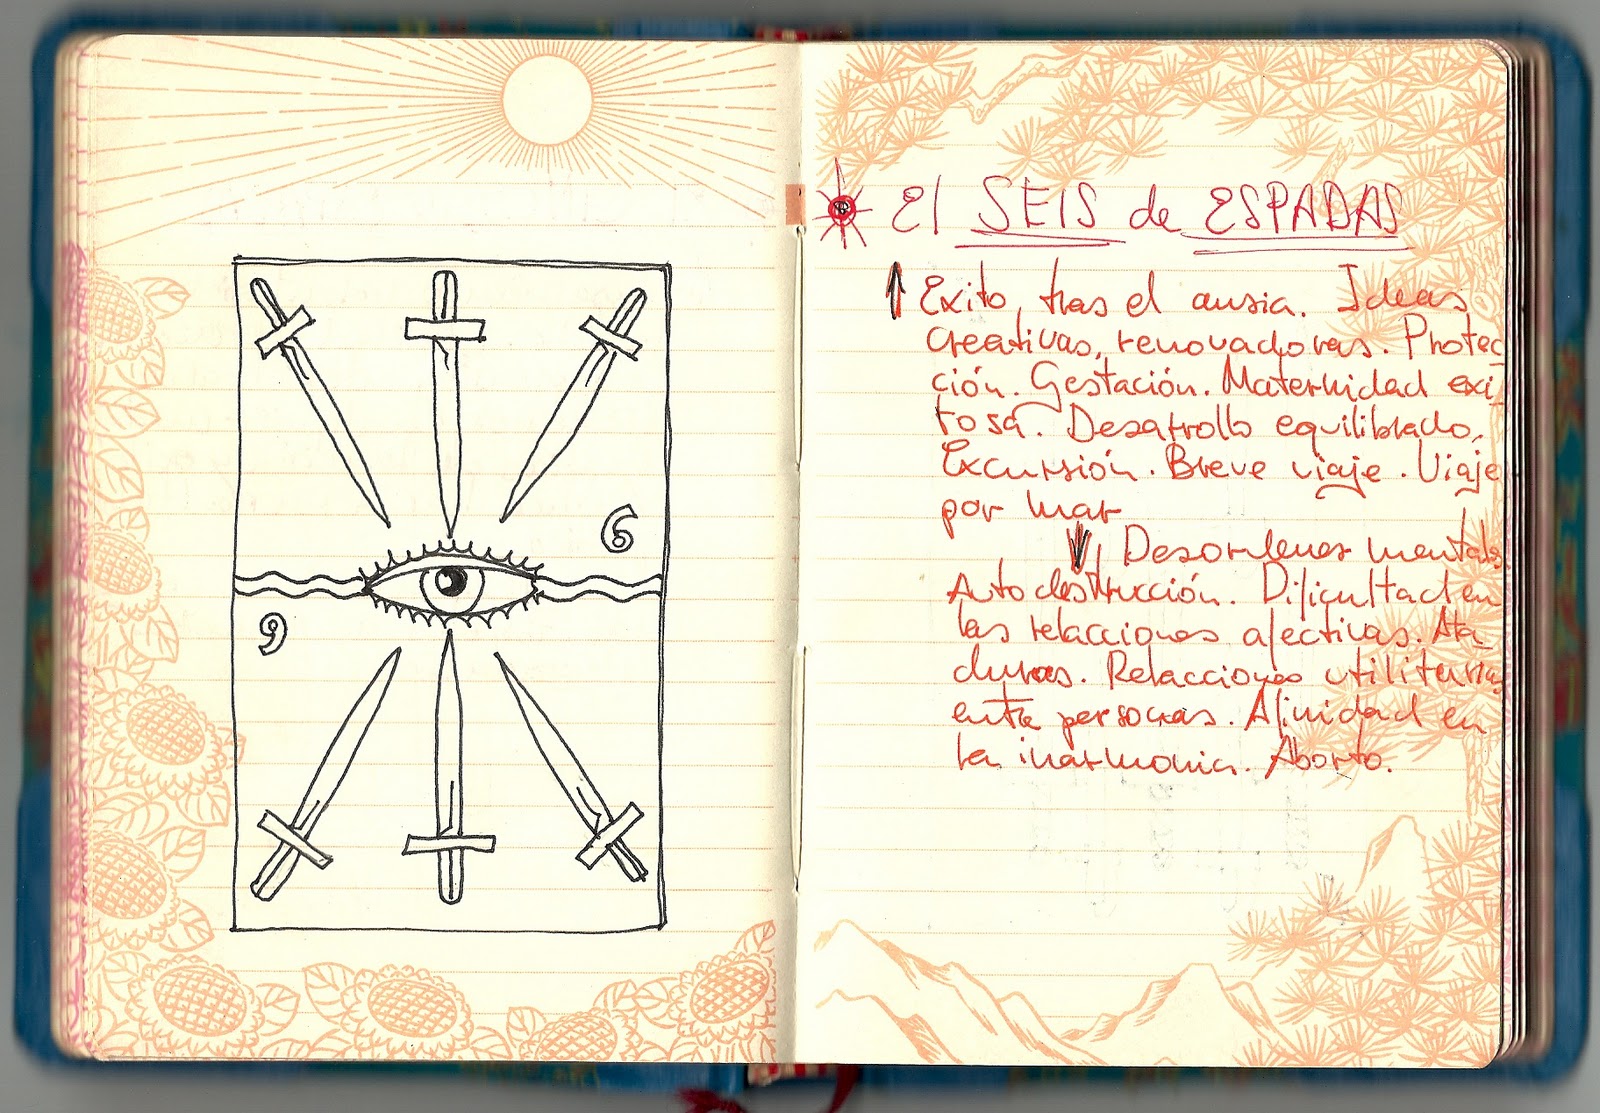 6
9
El SEIS de ESPADAS
Exito, tras el ansia. Ideas
creativas, renovadoras. Protec
ción. Gestación. Maternidad exi
tosa. Desarrollo equilibrado.
Excursión. Breve viaje. Viaje
por mar
Desordenes mentales
Autodestrucción. Dificultad en
las relaciones afectivas. Ata
duras. Relaciones utilitarias
entre personas. Afinidad en
la inarmonia. Aborto.